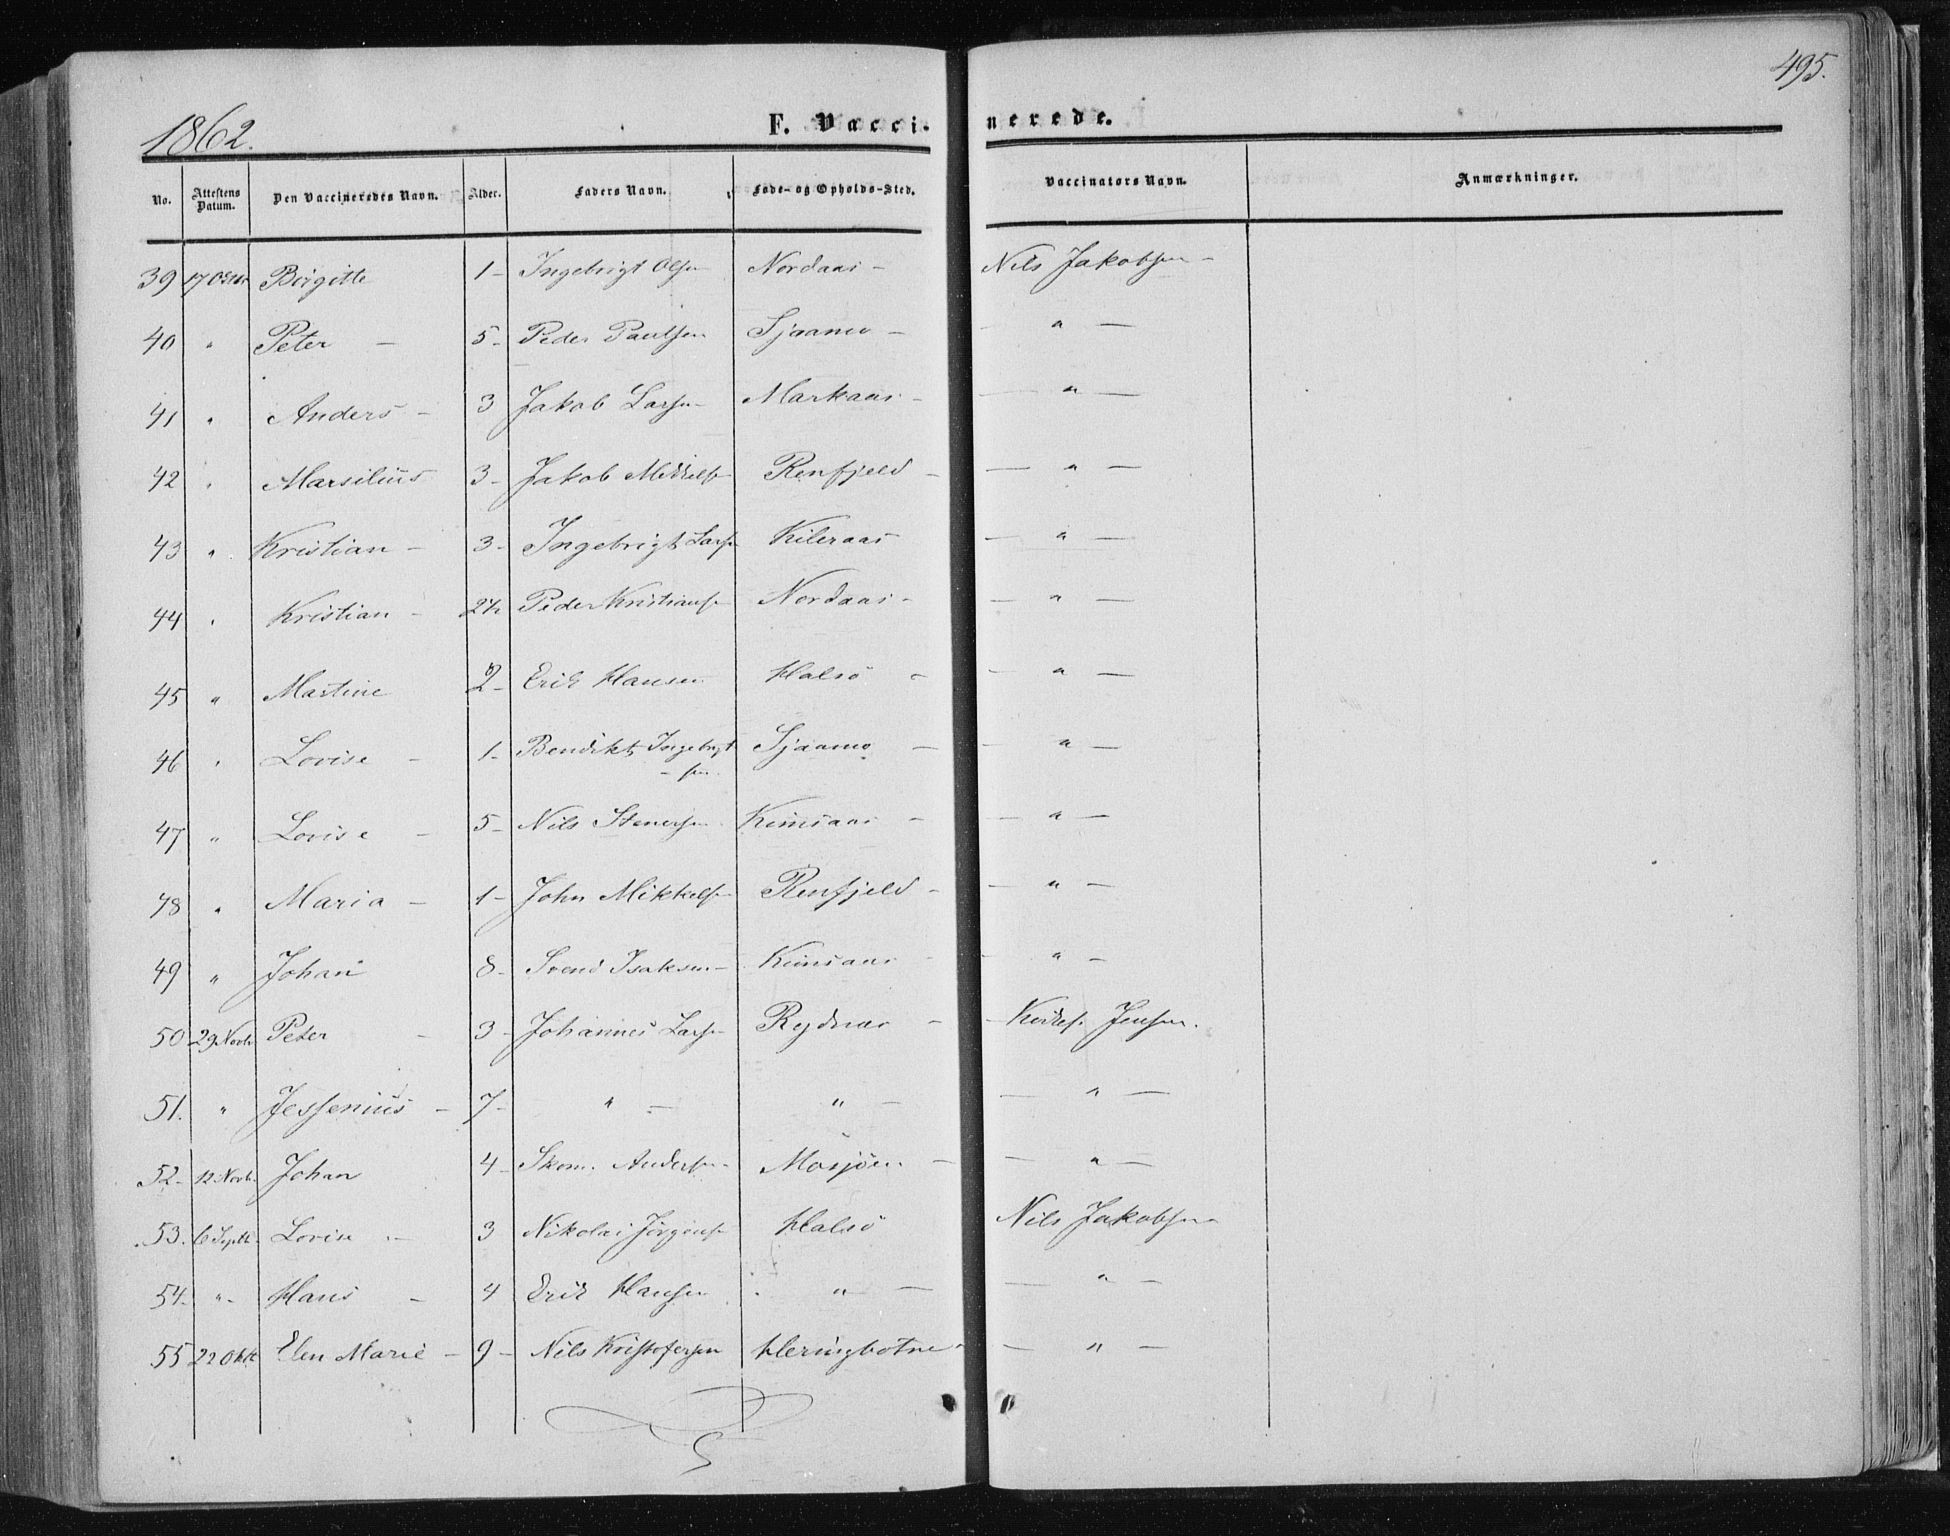 495.
1862.
F. Vacci- nerede.
No. Attestens Datum. Den Vaccineredes Navn. Alder. Faders Navn. Føde- og Opholds-Sted. Vaccinators Navn. Anmærkninger.
39 17 Octbr Birgitte 1 - Ingebrigt Olsen Nordaas - Nils Jakobsen -
40 " Peter - 5 - Peder Paulsen Sjaamo - - " -
41 " Anders - 3 Jakob Larsen Markaas - - " -
42 " Marsilius 3 - Jakob Mikkels Renfjeld - - " -
43 " Kristian - 3 - Ingebrigt Lars Kileraas - " -
44 " Kristian - 2½ Peder Kristians Nordaas - - " -
45 " Martine 2 - Erik Hansen Halsö - - " -
46 " Lovise - 1 - Bendikt Ingebrigt Sjaamo - - " -
- sen.
47 " Lovise - 5 - Nils Stenersen Kimsaas - - " -
48 " Maria - 1 - John Mikkels Renfjeld - - " -
49 " Johan 8 - Svend Isaksen - Kimsaas - - " -
50 29 Novb Peter - 3 - Johannes Lars - - Jensen.
51. " Jessenius - 7 - " - " - - " -
52 - 12 Novb. Johan 4 - Skom. Andersen - Mosjöen - - " -
53. 6 Septb. Lovise - 3 Nikolai Jörgens Halsö Nils Jakobsen
54 - " - Hans - 4 Erik Hansen " - - " -
55 22 Okt Elen Marie - 9 - Nils Kristofersen Heringbotne - - " -